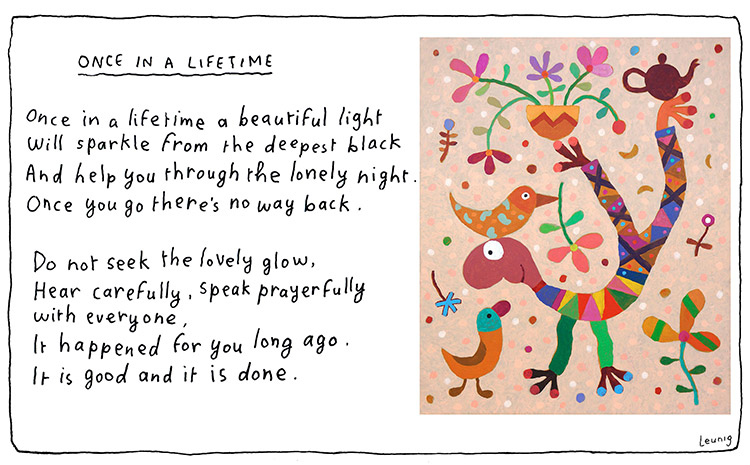 ONCE IN A LIFETIME
Once in a lifetime a beautiful light
Will sparkle from the deepest black
And help you through the lonely night.
Once you go there's no way back.
Do not seek the lovely glow,
Hear carefully, speak prayerfully
with everyone,
It happened for you long ago.
It is good and it is done.
Leunig